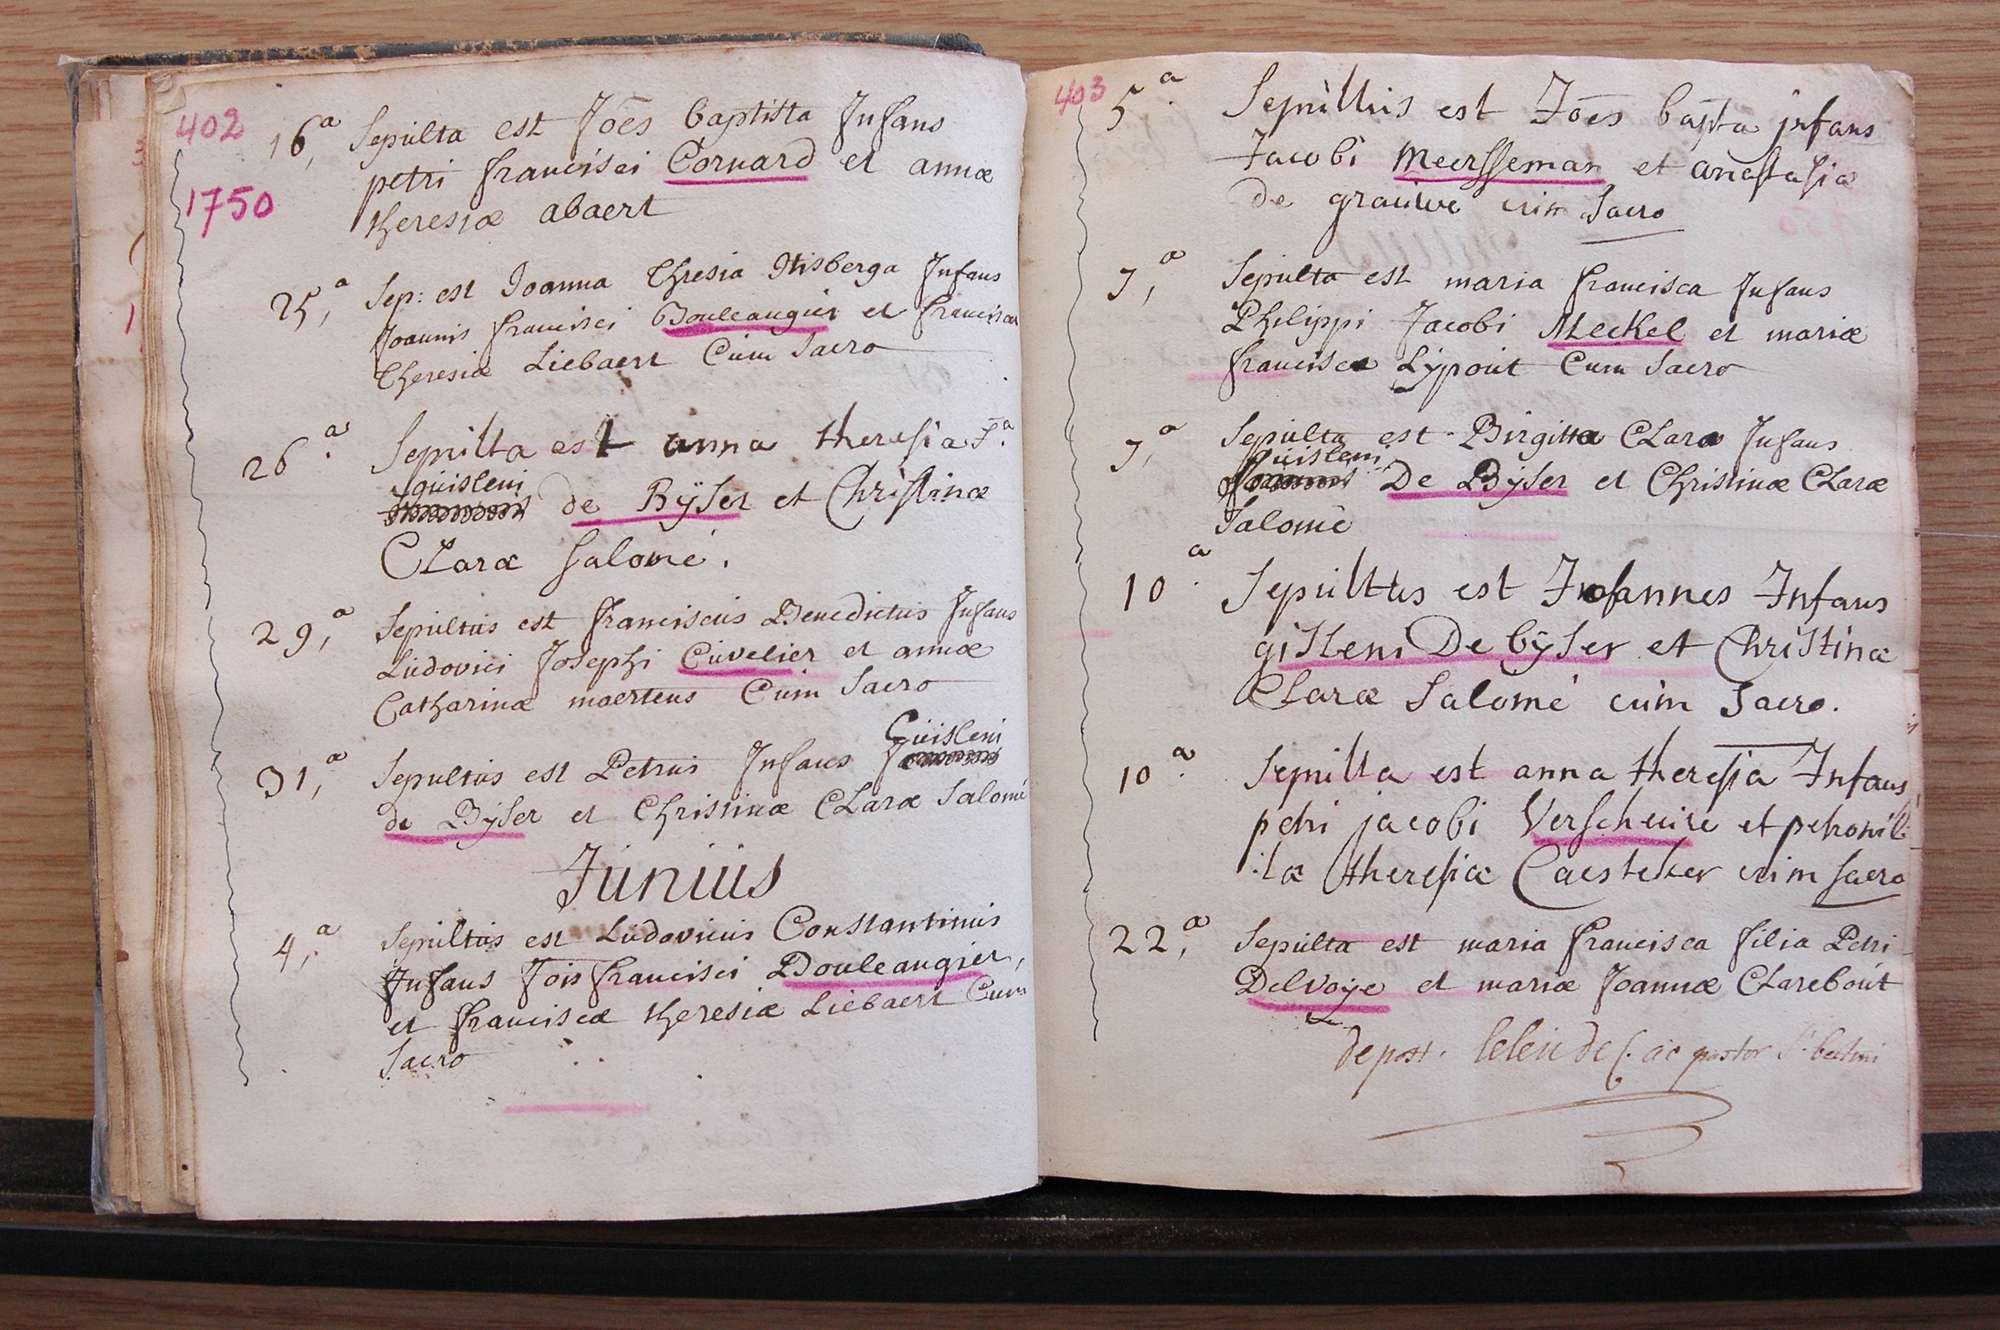 402
1750
16,a Sepulta est Joēs baptista Infans
petri francisci Cornard et annæ
theresiæ abaert
25,a Sep: est Joanna Thresia Infans
Joannis francisci Bouleaugier et franciscæ
Theresiæ Liebaert Cum Sacro
26.a Sepulta est anna theresia
guisleni
de Bÿser et Christinæ
Claræ Salomé.
29,a Sepultus est franciscus Benedictus Infans
Ludovici Josephi Cuvelier et annæ
Catharinæ maertens Cum Sacro
Guisleni
31,a Sepultus est Petrus Infans
de Bÿser et Christinæ Claræ Salomé
Junius
4,a Sepultus est Ludovicus Constantinus
Infans Jois francisci Bouleaugier,
et franciscæ theresiæ Liebaert Cum
Sacro
403
5.a Sepultus est Joēs bapta infans
Jacobi Meersseman et anastasiæ
de grauwe cum Sacro
7,a Sepulta est maria francisca Infans
Philippi Jacobi Meckel et mariæ
franciscæ Lÿpout Cum Sacro
7,a Sepulta est Birgitta Clara Infans
Guisleni
De Bÿser et Christinæ Claræ
Salomé
10.a Sepultus est Joannes Infans
gisleni De bÿser et Christinæ
Claræ Salomé cum Sacro.
10.a Sepulta est anna theresia Infans
petri jacobi Verscheure et petronil-
:læ theresiæ Caesteker cum sacro
22,a Sepulta est maria francisca filia Petri
Delvoye et mariæ Joannæ Clarebout
pastor